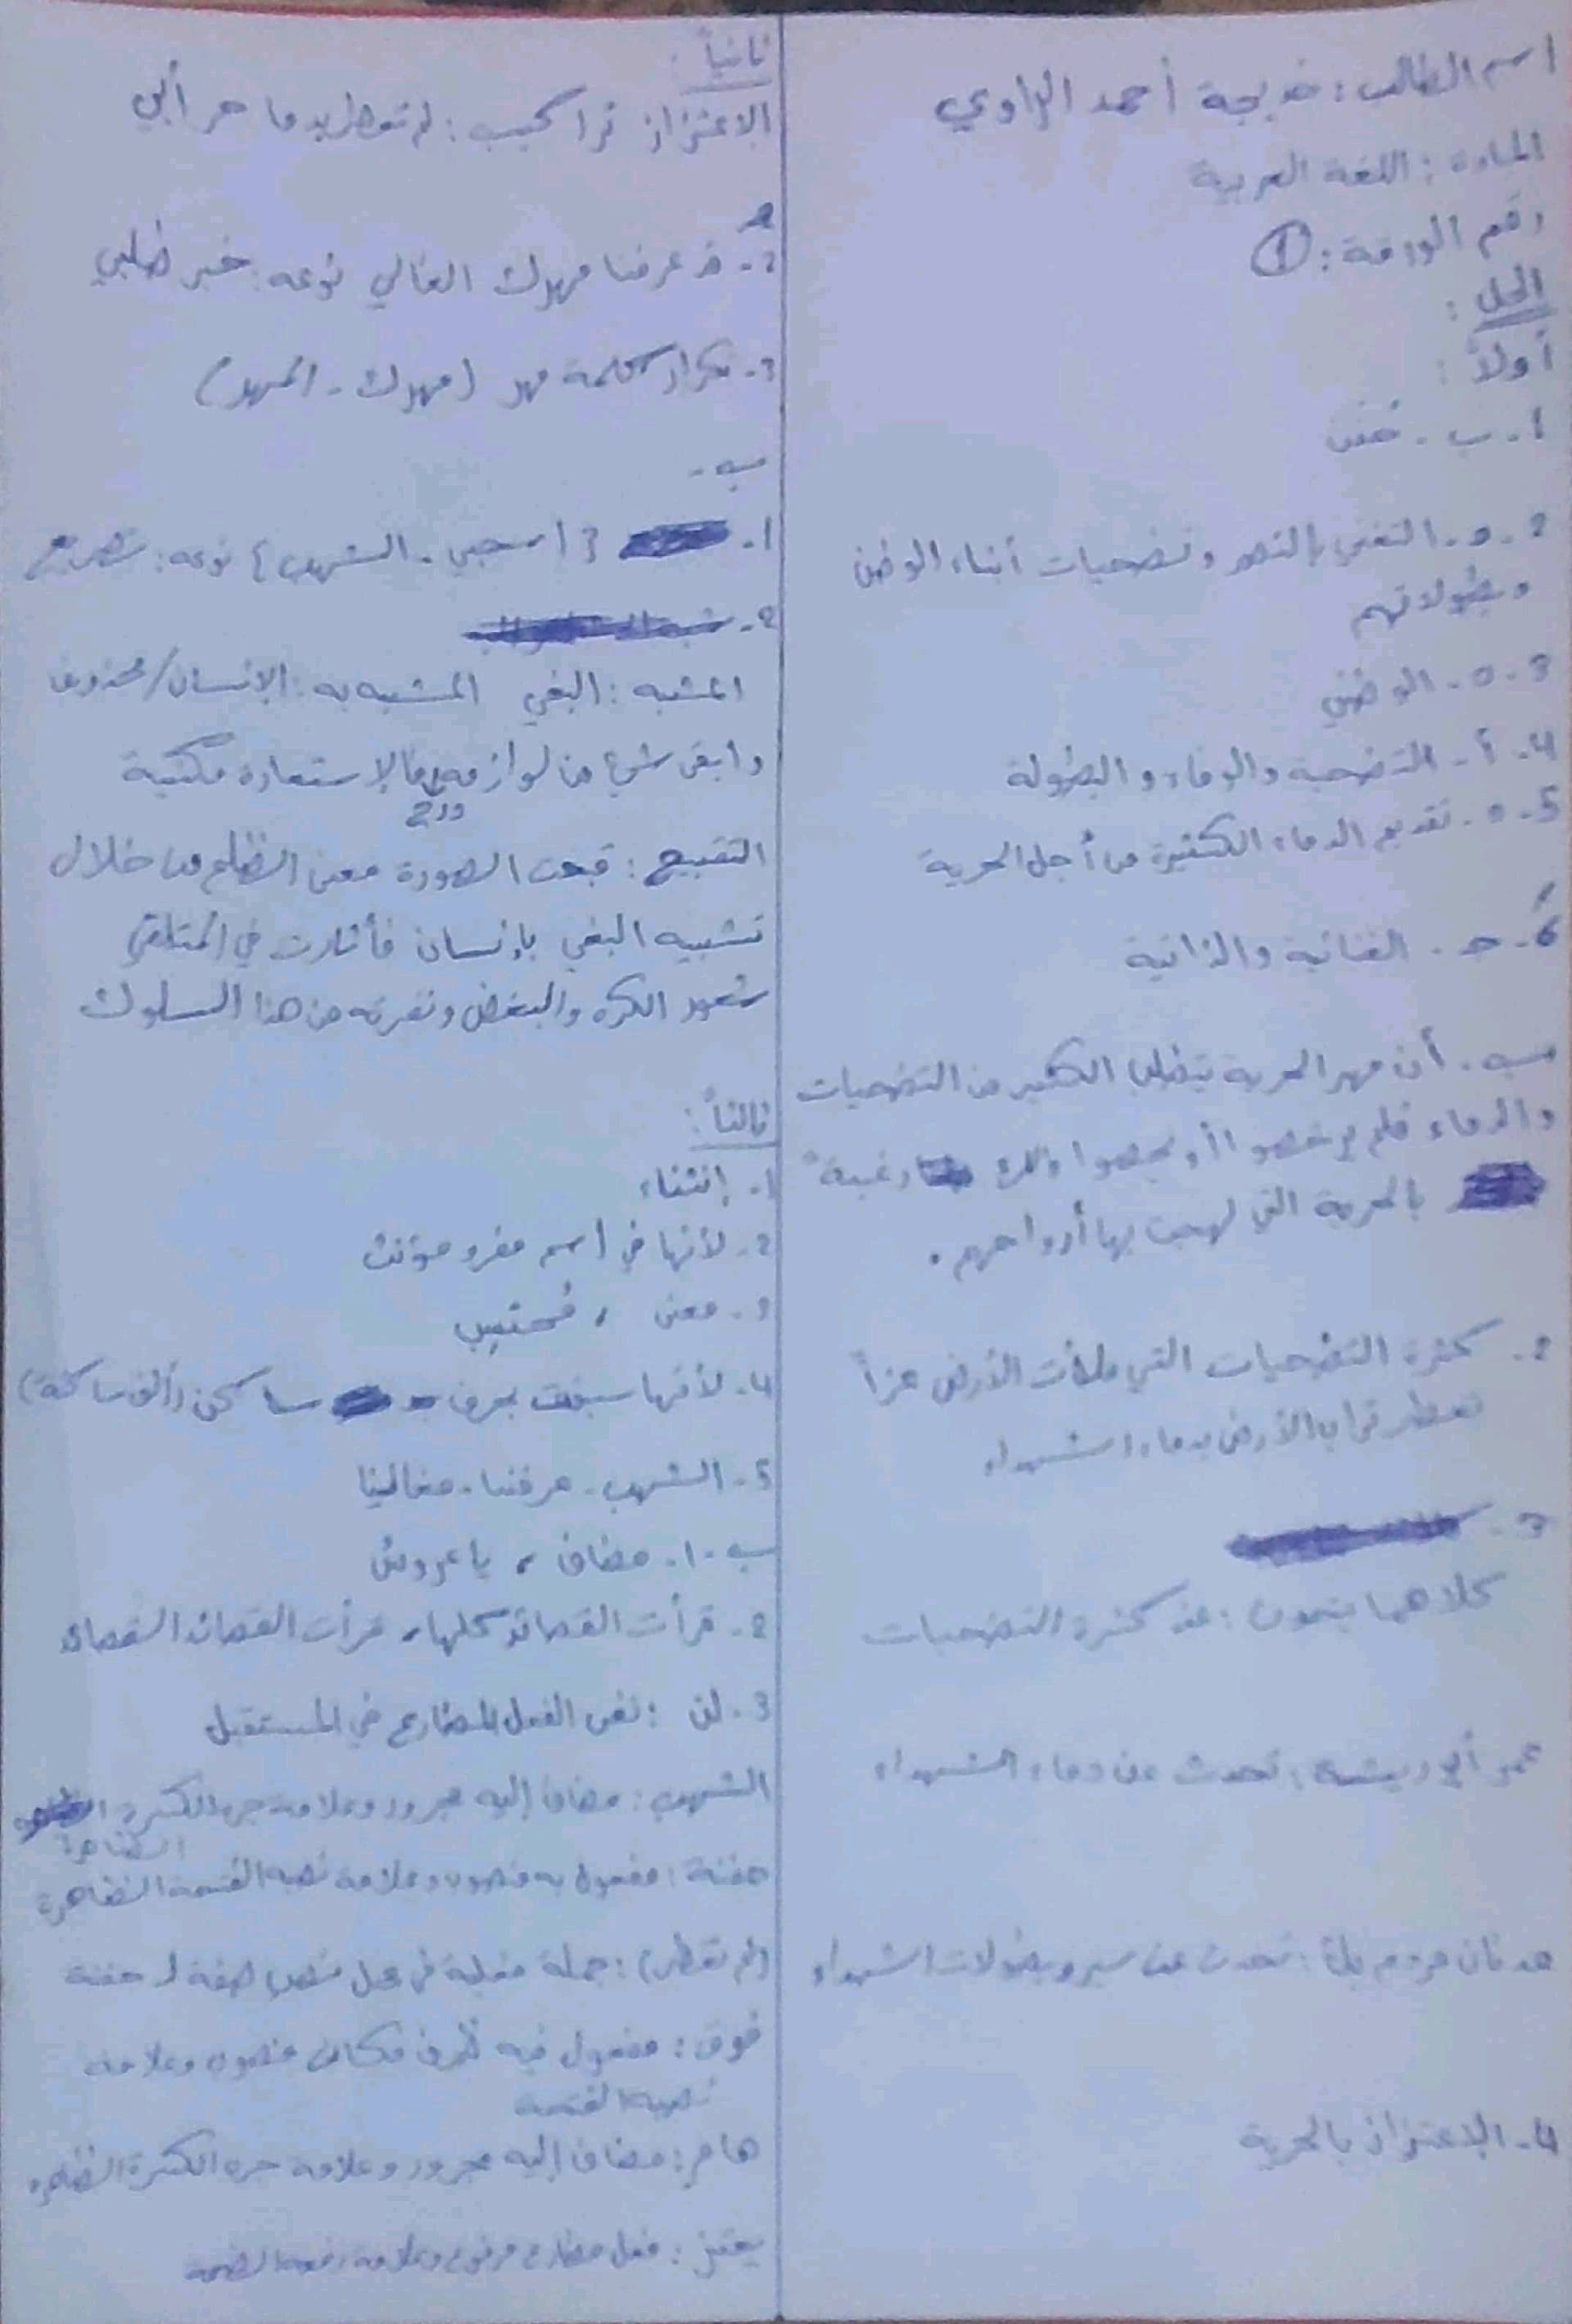 اسم الطالب: خديجة أحمد الراوي
المادة: اللغة العربية
رقم الورقة: 1
الحل:
أولاً:
1- ب -
2- د- التغني بالنصر وتضحيات أبناء الوطن
وبطولاتهم
3- د- الوطني
4- أ- التضحية والوفاء والبطولة
5- د- تقديم الدماء الكثيرة من أجل الحرية
6- ج- الغنائية والذاتية
ب- أن مهر الحرية يتطلب الكثير من التضحيات
والدماء فلم يرخصوا أو رغبةً
بالحرية التي لهجت بها أرواحهم.
2- كثرة التضحيات التي ملأت الأرض عزاً
تعطر تراب الأرض بدماء الشهداء
3-
كلاهما يتحدث: عن كثرة التضحيات
عمر أبو ريشة: تحدث عن دماء الشهداء
عدنان مردم بك: تحدث عن سير وبطولات الشهداء
4- الاعتزاز بالحرية
ثانياً:
الاعتزاز تراكيب: لم تعطر بدما حر أبي
2- قد عرفنا مهرك الغالي نوعه: خبر طلبي
3- تكرار كلمة مهر (مهرك - المهر)
ب-
1- {اسحبي - الشهب} نوعه: تصريع
2-
المشبه: البغي المشبه به: الإنسان/محذوف
وأبقى شيء من لوازمه فالاستعارة مكنية
التقبيح: قبحت الصورة معنى الظلم من خلال
تشبيه البغي بإنسان فأثارت في المتلقي
شعور الكره والبغض ونفرته من هذا السلوك
ثالثاً:
1- إنشاء
2- لأنها في اسم مفرد مؤنث
3- معنى ،
4- لأنها سبقت بحرف ساكن (ألف ساكنة)
5- الشهب - عرفنا - مغالينا
ب-1- مضاف ، يا عروس
2- قرأت القصائد كلها، قرأت القصائد القصائد
3- لن: نفي الفعل المضارع في المستقبل
الشهب: مضاف إليه مجرور وعلامة جره الكسرة
الظاهرة
حفنة: مفعول به منصوب وعلامة نصبه الفتحة الظاهرة
(لم تعطر): جملة فعلية في محل نصب صفة لـ حفنة
فوق: مفعول فيه ظرف مكان منصوب وعلامة
نصبه الفتحة
هام: مضاف إليه مجرور وعلامة جره الكسرة الظاهرة
يعتز: فعل مضارع مرفوع وعلامة رفعه الضمة